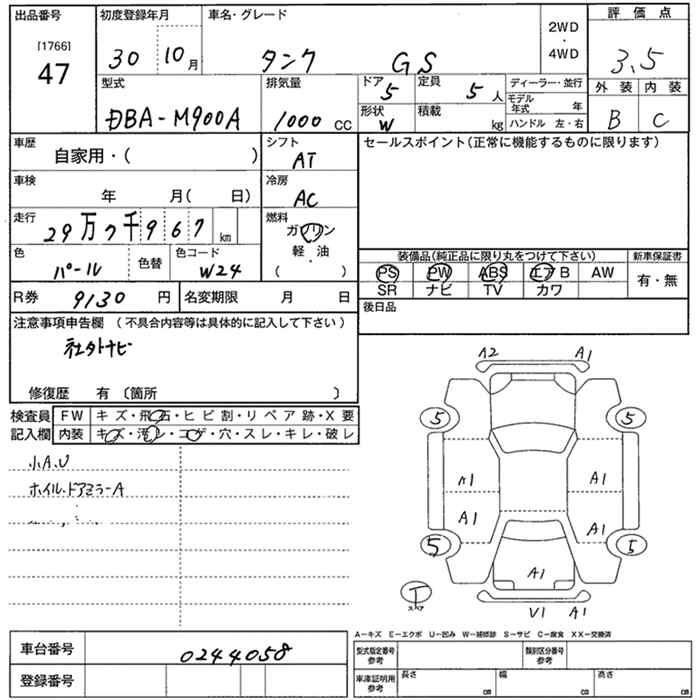 出品番号 初度登録年月 車名・グレード 2WD・4WD 評価点
[1766] 47 30 10月 タンク GS 3.5
型式 排気量 ドア 5 定員 5人 ディーラー・並行 外装 内装
DBA-M900A 1000cc 形状 W 積載 kg モデル年式 年 ハンドル 左・右 B C
車歴 自家用・( ) シフト AT セールスポイント(正常に機能するものに限ります)
車検 年 月( 日) 冷房 AC
走行 29万7千967km 燃料 ガソリン・軽油・( )
色 パール 色替 色コード W24 装備品(純正品に限り丸をつけて下さい) 新車保証書
PS PW ABS エアB AW 有・無
R券 9130円 名変期限 月 日 SR ナビ TV カワ
注意事項申告欄 (不具合内容等は具体的に記入して下さい) 後日品
社外ナビ
修復歴 有 〔箇所 〕
検査員記入欄 FW キズ・飛石・ヒビ割・リペア跡・X要
内装 キズ・汚レ・コゲ・穴・スレ・キレ・破レ
小A.U
ホイル・ドアミラーA
A2 A1
5 5
A1 A1
A1 A1
5 5
A1
T スペア
V1 A1
A−キズ E−エクボ U−凹み W−補修跡 S−サビ C−腐食 XX−交換済
車台番号 0244058 型式指定番号 参考 類別区分番号 参考
登録番号 車庫証明用 参考 長さ cm 幅 cm 高さ cm